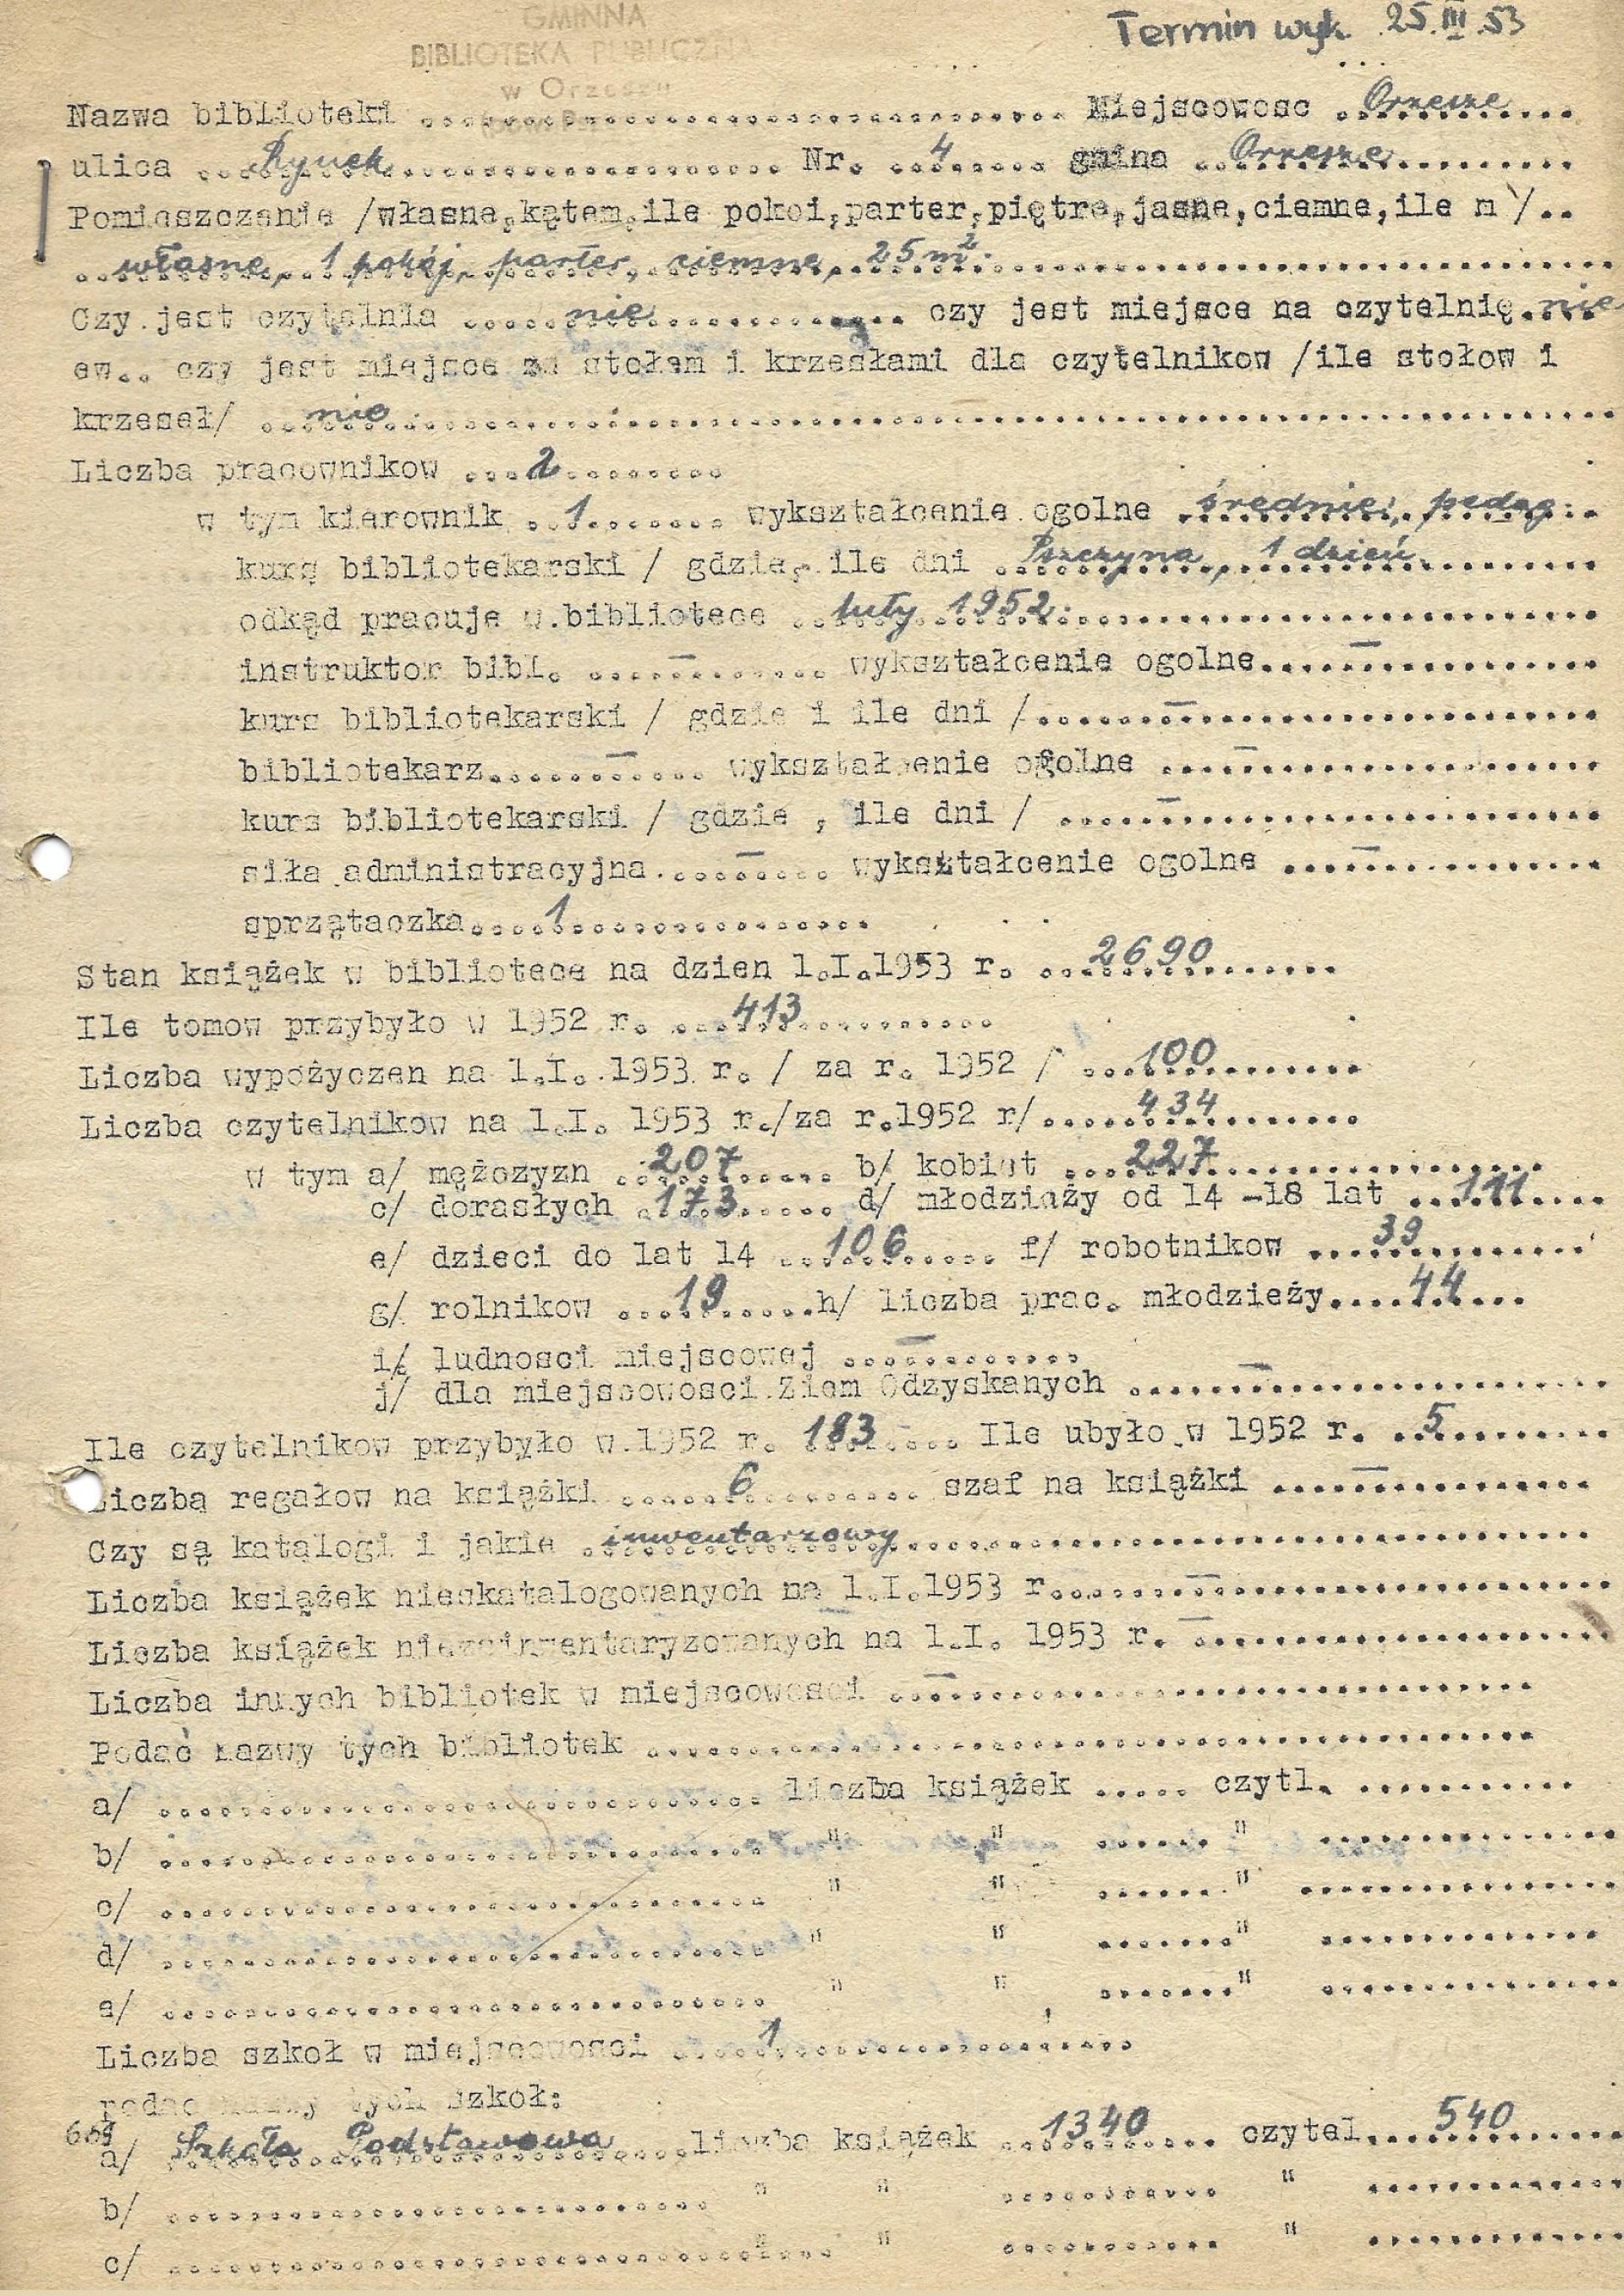 Termin wyk. 25.III.53
GMINNA
BIBLIOTEKA PUBLICZN
w Orzeszu
Nazwa biblioteki .......... Miejscowosc Orzesze
ulica Rynek Nr. 4 gmina Orzesze
Pomieszczenie /własne,kątem,ile pokoi,parter,piętro,jasne,ciemne,ile m /..
własne, 1 pokój, parter, ciemne, 25 m².
Czy jest czytelnia nie czy jest miejsce na czytelnię nie
ew.. czy jest miejsce za stołem i krzesłami dla czytelnikow /ile stołow i
krzeseł/ nie
Liczba pracownikow 2
w tym kierownik 1 wykształcenie ogolne średnie, pedag.
kurs bibliotekarski / gdzie, ile dni Pszczyna, 1 dzień
odkąd pracuje w.bibliotece luty 1952.
instruktor bibl. – wykształcenie ogolne –
kurs bibliotekarski / gdzie i ile dni / –
bibliotekarz – wykształcenie ogolne –
kurs bibliotekarski / gdzie , ile dni / –
siła administracyjna – wykształcenie ogolne –
sprzątaczka 1
Stan książek w bibliotece na dzien 1.I.1953 r. 2690
Ile tomow przybyło w 1952 r. 413
Liczba wypożyczen na 1.I. 1953 r. / za r. 1952 / 100
Liczba czytelnikow na 1.I. 1953 r./za r.1952 r/ 434
w tym a/ mężczyzn 207 b/ kobiet 227
c/ dorasłych 173 d/ młodzieży od 14 -18 lat 111
e/ dzieci do lat 14 106 f/ robotnikow 39
g/ rolnikow 19 h/ liczba prac. młodzieży 44
i/ ludnosci miejscowej –
j/ dla miejscowosci Ziem Odzyskanych –
Ile czytelnikow przybyło w.1952 r. 183 Ile ubyło w 1952 r. 5
Liczba regałow na książki 6 szaf na książki –
Czy są katalogi i jakie inwentarzowy
Liczba książek nieskatalogowanych na 1.I.1953 r. –
Liczba książek niezainwentaryzowanych na 1.I. 1953 r. –
Liczba innych bibliotek w miejscowosci –
Podać nazwy tych bibliotek ..........
a/ .......... liczba książek ..... czytl. ..........
b/ .......... " " ...... " ..........
c/ .......... " " ...... " ..........
d/ .......... " " ...... " ..........
e/ .......... " " ...... " ..........
Liczba szkoł w miejscowosci 1
podac nazwy tych szkoł:
a/ Szkoła Podstawowa liczba książek 1340 czytel. 540
b/ .......... " " .......... " ..........
c/ .......... " " .......... " ..........